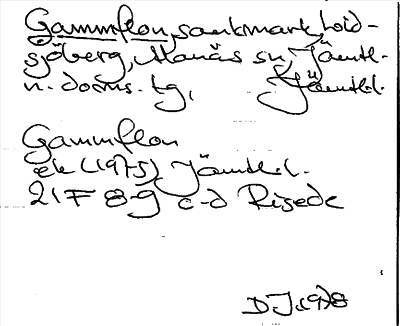 Gammflon, sankmark, Hoid-
sjöberg, Alanäs sn, Jämtl.
n. doms. tg, Jämtl.l.
Gammflon
ek (1975) Jämtl.l.
21F 8-9 c-d Risede
D.J. 1978